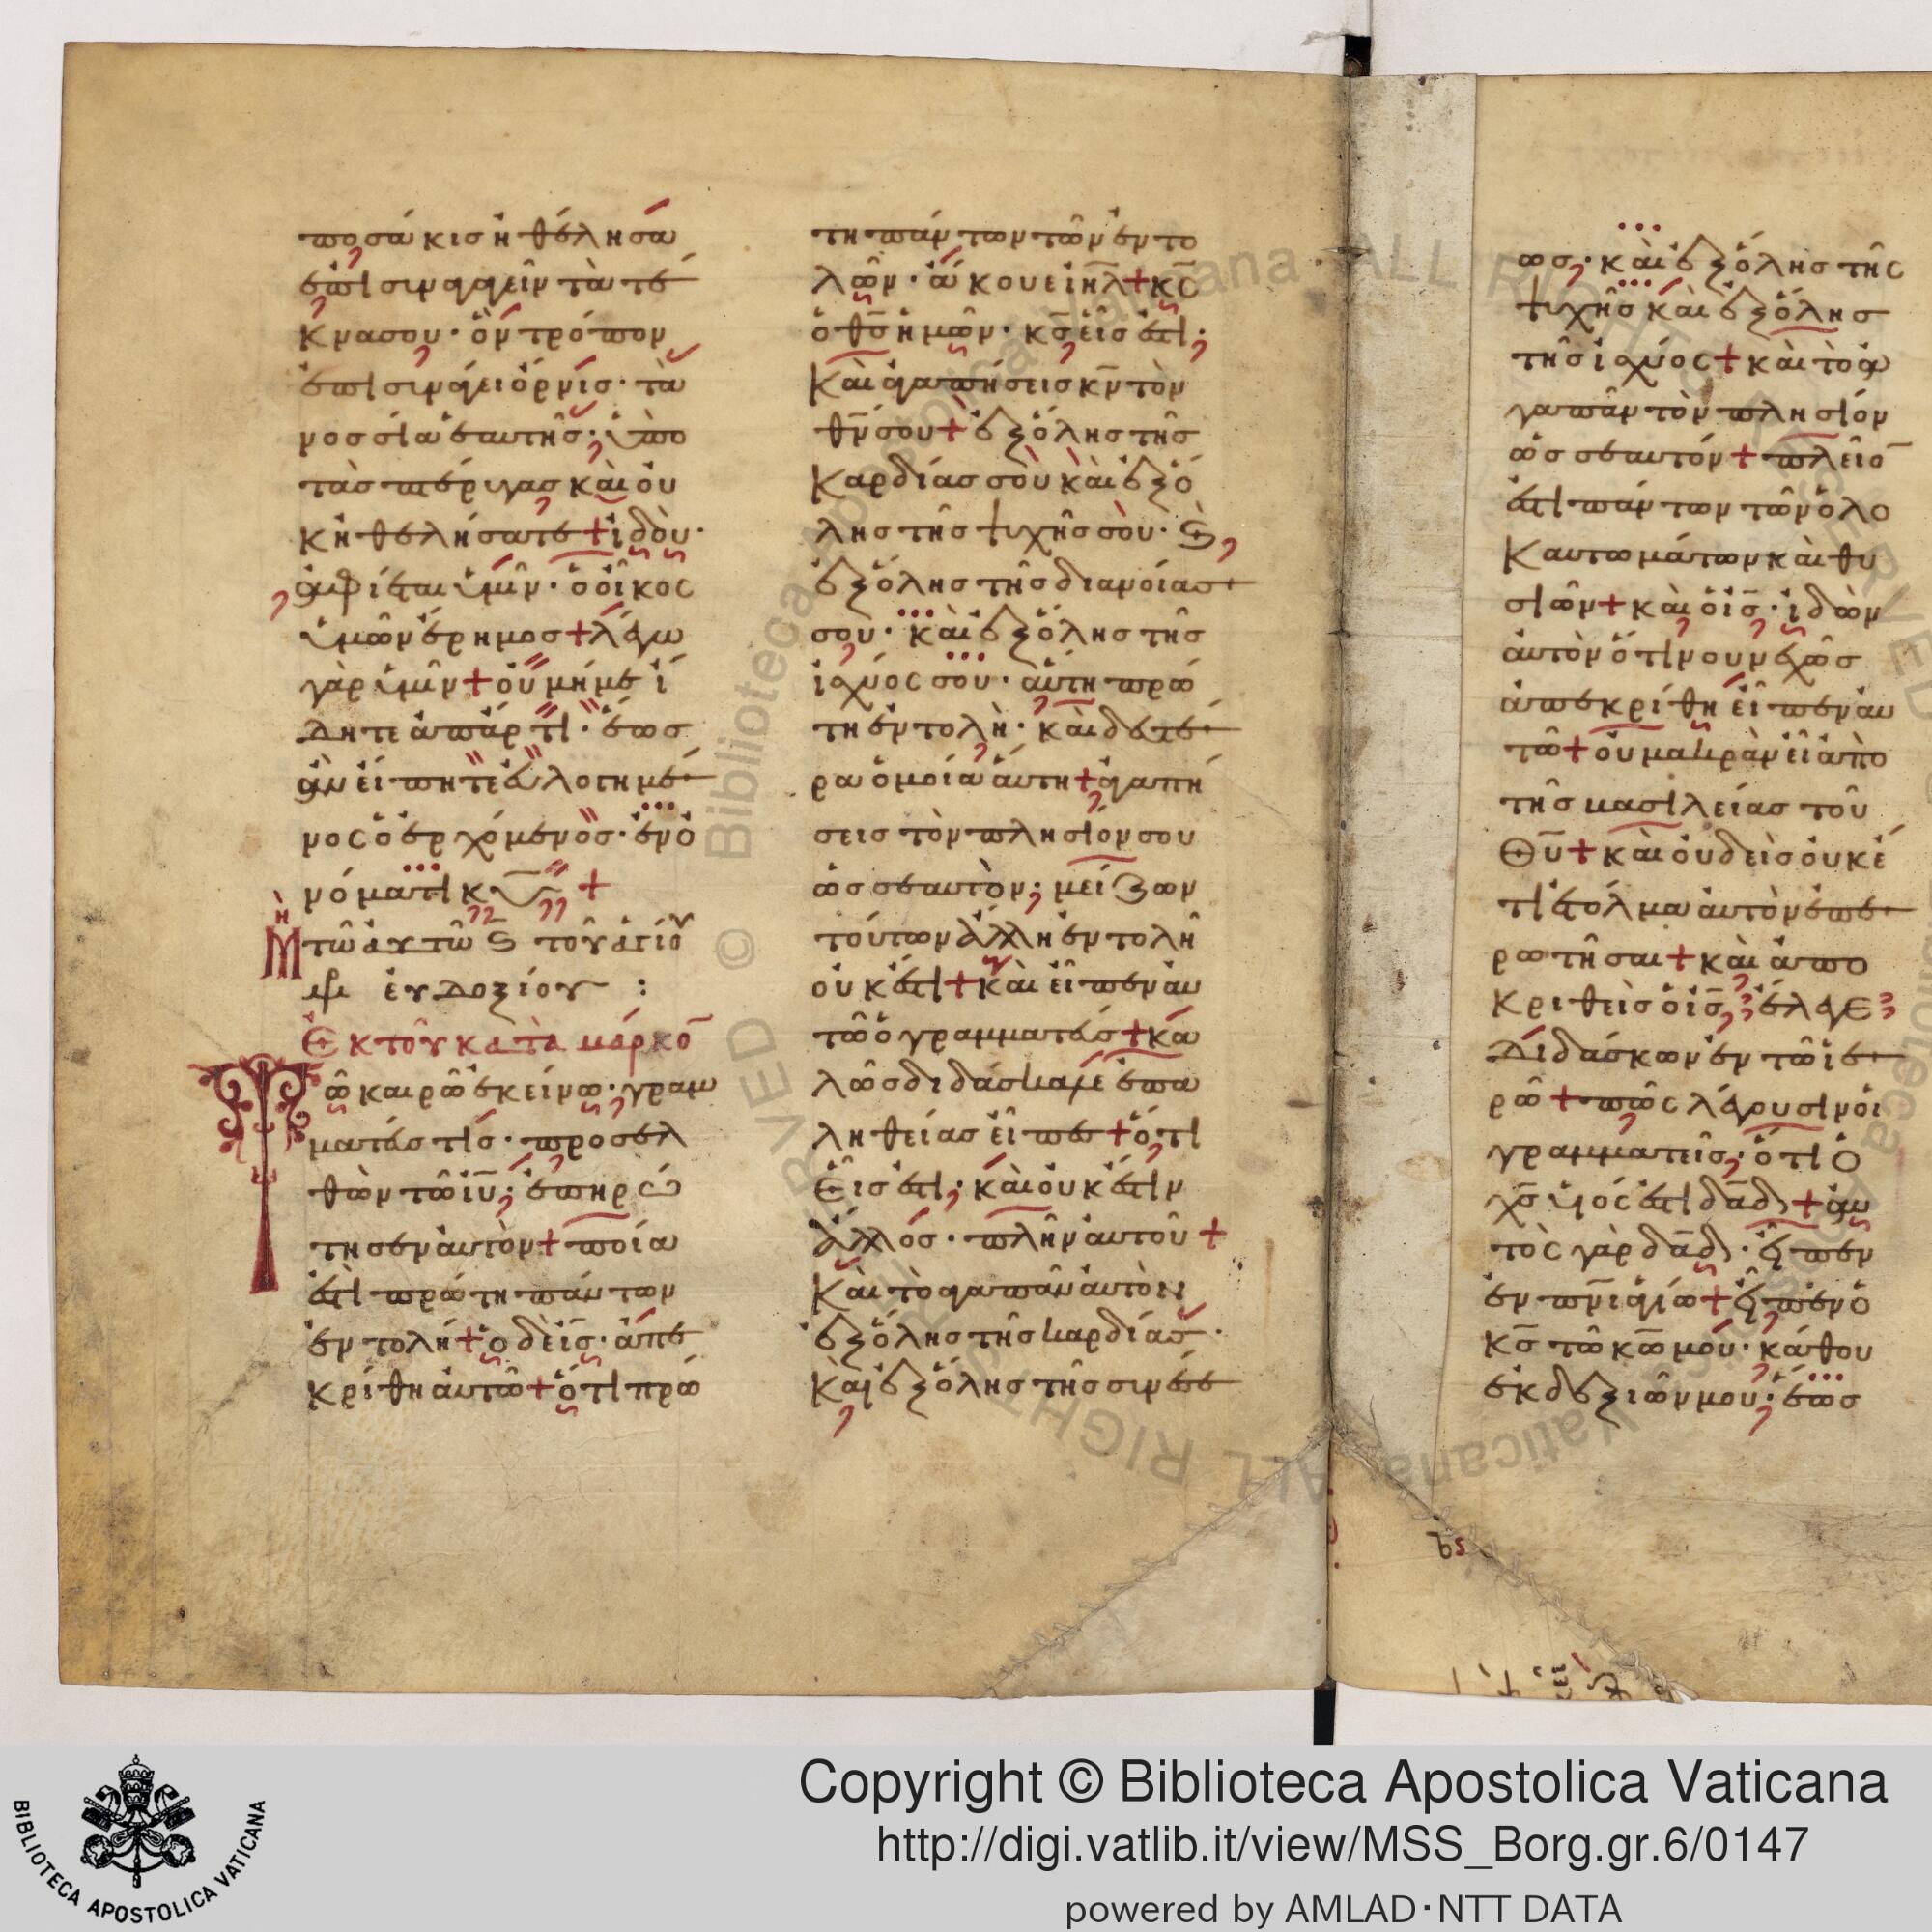 ποσάκις ἠθέλησα
ἐπισυναγαγεῖν τὰ τέ
κνα σου· ὃν τρόπον
ἐπισυνάγει ὄρνις· τὰ
νοσσία ἑαυτῆς· ὑπὸ
τὰς πτέρυγας καὶ οὐ
κ ἠθελήσατε + ἰδοὺ·
ἀφίεται ὑμῖν· ὁ οἶκος
ὑμῶν ἔρημος + λέγω
γὰρ ὑμῖν + οὐ μή με ἴ
δητε ἀπάρτι· ἕως
ἂν εἴπητε εὐλογημέ
νος ὁ ἐρχόμενος· ἐν ὀ
νόματι κυ +
Μη τῶ αυτῶ ς τοῦ ἁγίου
μρ εὐδοξίου :
Ἐκ τοῦ κατὰ μάρκο
Τῶ καιρῶ ἐκείνω· γραμ
ματεύς τίς· προσελ
θὼν τῶ ιυ· ἐπηρώ
τησεν αὐτὸν + ποία
ἐστὶ πρώτη πάντων
ἐντολή + ὁ δὲ ις· ἀπε
κρίθη αὐτῶ + ὅτι πρώ
τη πάντων τῶν ἐντο
λῶν· ἄκουε ιηλ + κς
ὁ θς ἡμῶν· κς εἷς ἐστί·
Καὶ ἀγαπήσεις κν τὸν
θν σου + ἐξ ὅλης τῆς
Καρδίας σοὺ καὶ ἐξ ὅ
λης τῆς ψυχῆς σοὺ· ς
ἐξ ὅλης τῆς διανοίας
σου· καὶ ἐξ ὅλης τῆς
ἰσχύος σου· αὕτη πρώ
τη ἐντολὴ· καὶ δευτέ
ρα ὁμοία αὕτη + ἀγαπή
σεις τὸν πλησίον σου
ὡς σεαυτὸν· μείζων
τούτων ἄλλη ἐντολὴ
οὐκ ἐστι + καὶ εἶπεν αυ
τῶ ὁ γραμματεύς + κα
λῶς διδάσκαλε ἐπ ἀ
ληθείας εἶπες + ὅτι
Εἷς ἐστι· καὶ οὐκ ἐστιν
ἄλλος· πλὴν αὐτοῦ +
Καὶ τὸ ἀγαπᾶν αὐτὸν
ἐξ ὅλης τῆς καρδίας·
Καὶ ἐξ ὅλης τῆς συνέσε
ως· καὶ ἐξ ὅλης τῆς
ψυχῆς καὶ ἐξ ὅλης
τῆς ἰσχύος + καὶ τὸ ἀ
γαπᾶν τὸν πλησίον
ὡς σεαυτόν + πλεῖο
ἐστι πάντων τῶν ὁλο
Καυτωμάτων καὶ θυ
σιῶν + καὶ ὁ ις· ἰδὼν
αὐτὸν ὅτι νουνεχῶς
ἀπεκρίθη εἶπεν αυ
τῶ + οὐ μακρὰν εἶ ἀπὸ
τῆς βασιλείας τοῦ
Θυ + καὶ οὐδεὶς οὐκέ
τι ἐτόλμα αὐτὸν ἐπε
ρωτῆσαι + καὶ ἀπο
Κριθεὶς ὁ ις· ἔλεγε
Διδάσκων ἐν τῶ ἱε
ρῶ + πῶς λέγουσιν οἱ
γραμματεῖς· ὅτι ὁ
χς υἱός ἐστι δαδ + αυ
τὸς γὰρ δαδ· εἶπεν
ἐν πνι ἁγίω + εἶπεν ὁ
κς τῶ κω μοῦ· κάθου
ἐκ δεξιῶν μου· ἕως
Copyright © Biblioteca Apostolica Vaticana
http://digi.vatlib.it/view/MSS_Borg.gr.6/0147
powered by AMLAD·NTT DATA
BIBLIOTECA APOSTOLICA VATICANA